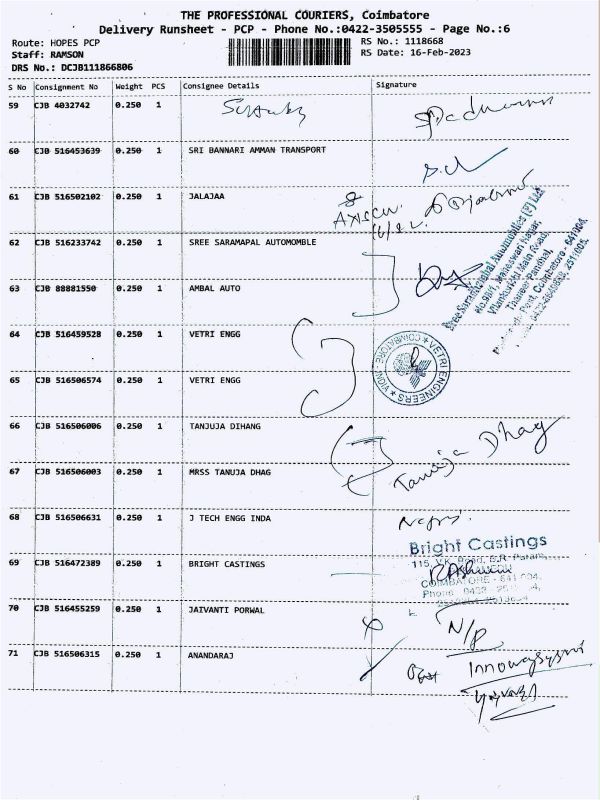 THE PROFESSIONAL COURIERS, Coimbatore
Delivery Runsheet - PCP - Phone No.:0422-3505555 - Page No.:6
Route: HOPES PCP
RS No.: 1118668
Staff: RAMSON
RS Date: 16-Feb-2023
DRS No.: DCJB111866806
S No Consignment No Weight PCS Consignee Details Signature
59 CJB 4032742 0.250 1
60 CJB 516453639 0.250 1 SRI BANNARI AMMAN TRANSPORT
61 CJB 516502102 0.250 1 JALAJAA
62 CJB 516233742 0.250 1 SREE SARAMAPAL AUTOMOMBLE
63 CJO 88881550 0.250 1 AMBAL AUTO
64 CJB 516459528 0.250 1 VETRI ENGG
VETRI ENGINEERS
COIMBATORE
INDIA
65 CJB 516506574 0.250 1 VETRI ENGG
66 CJB 516506006 0.250 1 TANJUJA DIHANG
Tanuja Dhag
67 CJB 516506003 0.250 1 MRSS TANUJA DHAG
68 CJB 516506631 0.250 1 J TECH ENGG INDA
Bright Castings
69 CJB 516472389 0.250 1 BRIGHT CASTINGS
COIMBATORE - 641 004.
70 CJB 516455259 0.250 1 JAIVANTI PORWAL
N/P
71 CJB 516506315 0.250 1 ANANDARAJ